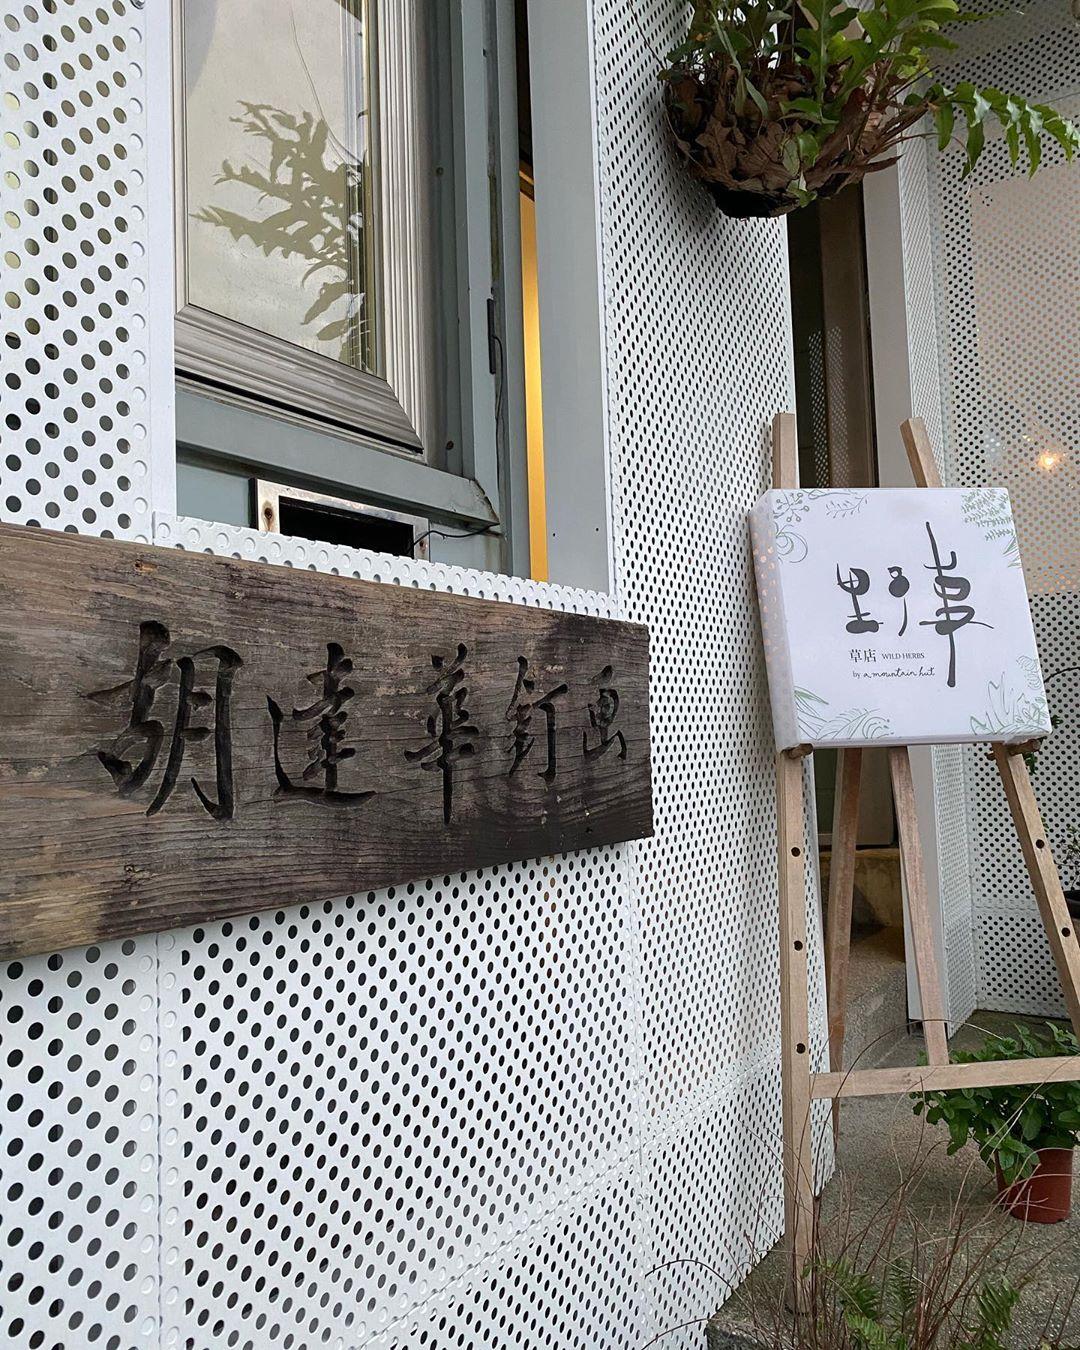 胡達華釘画
野事
草店 WILD HERBS
by a mountain hut